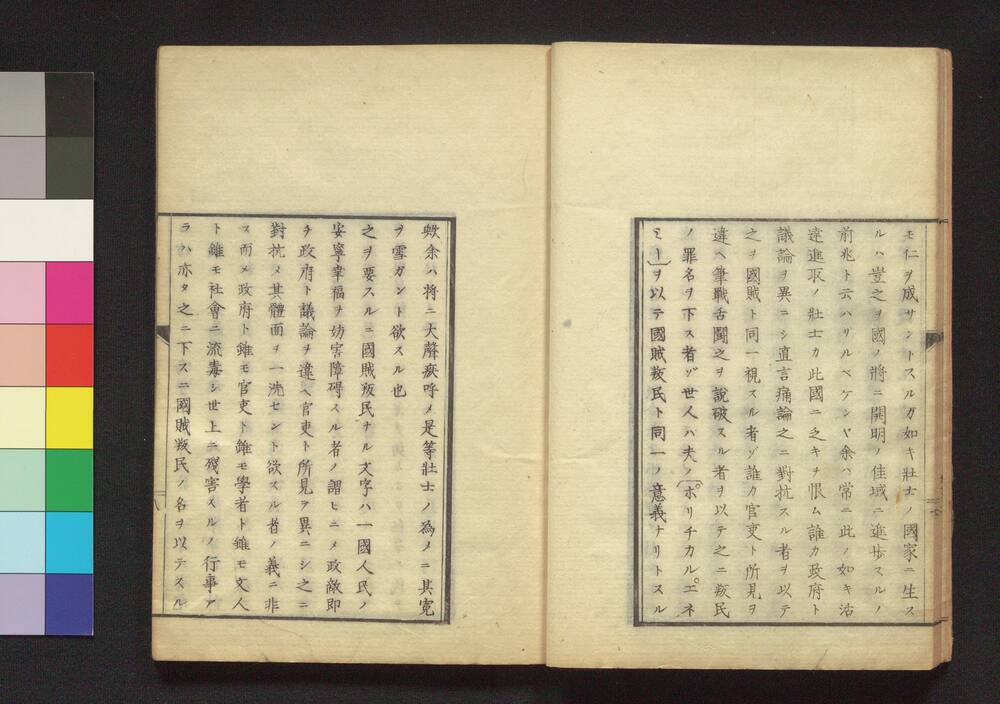 モ仁ヲ成サントスルガ如キ壮士ノ國家ニ生ス
ルハ豈之ヲ國ノ將ニ開明ノ佳域ニ進歩スルノ
前兆ト云ハザルベケンヤ余ハ常ニ此ノ如キ活
達進取ノ壯士カ此國ニ乏キヲ恨ム誰カ政府ト
議論ヲ異ニシ直言痛論之ニ對抗スル者ヲ以テ
之ヲ國賊ト同一視スル者ゾ誰カ官吏ト所見ヲ
違ヘ筆戰舌鬪之ヲ說破スル者ヲ以テ之ニ叛民
ノ罪名ヲ下ス者ゾ世人ハ夫ノ「ポリチカルエネ
ミー」ヲ以テ國賊叛民ト同一ノ意義ナリトスル
歟余ハ将ニ大聲疾呼メ是等壯士ノ為メニ其寃
ヲ雪ガント欲スル也
之ヲ要スルニ國賊叛民ナル文字ハ一國人民ノ
安寧幸福ヲ妨害障碍スル者ノ謂ヒニメ政敵即
チ政府ト議論ヲ違ヘ官吏ト所見ヲ異ニシ之ニ
對抗メ其體面ヲ一洗セント欲スル者ノ義ニ非
ス而メ政府ト雖モ官吏ト雖モ學者ト雖モ文人
ト雖モ社會ニ流毒シ世上ニ殘害スルノ行事ア
ラハ亦タ之ニ下スニ國賊叛民ノ名ヲ以テスル